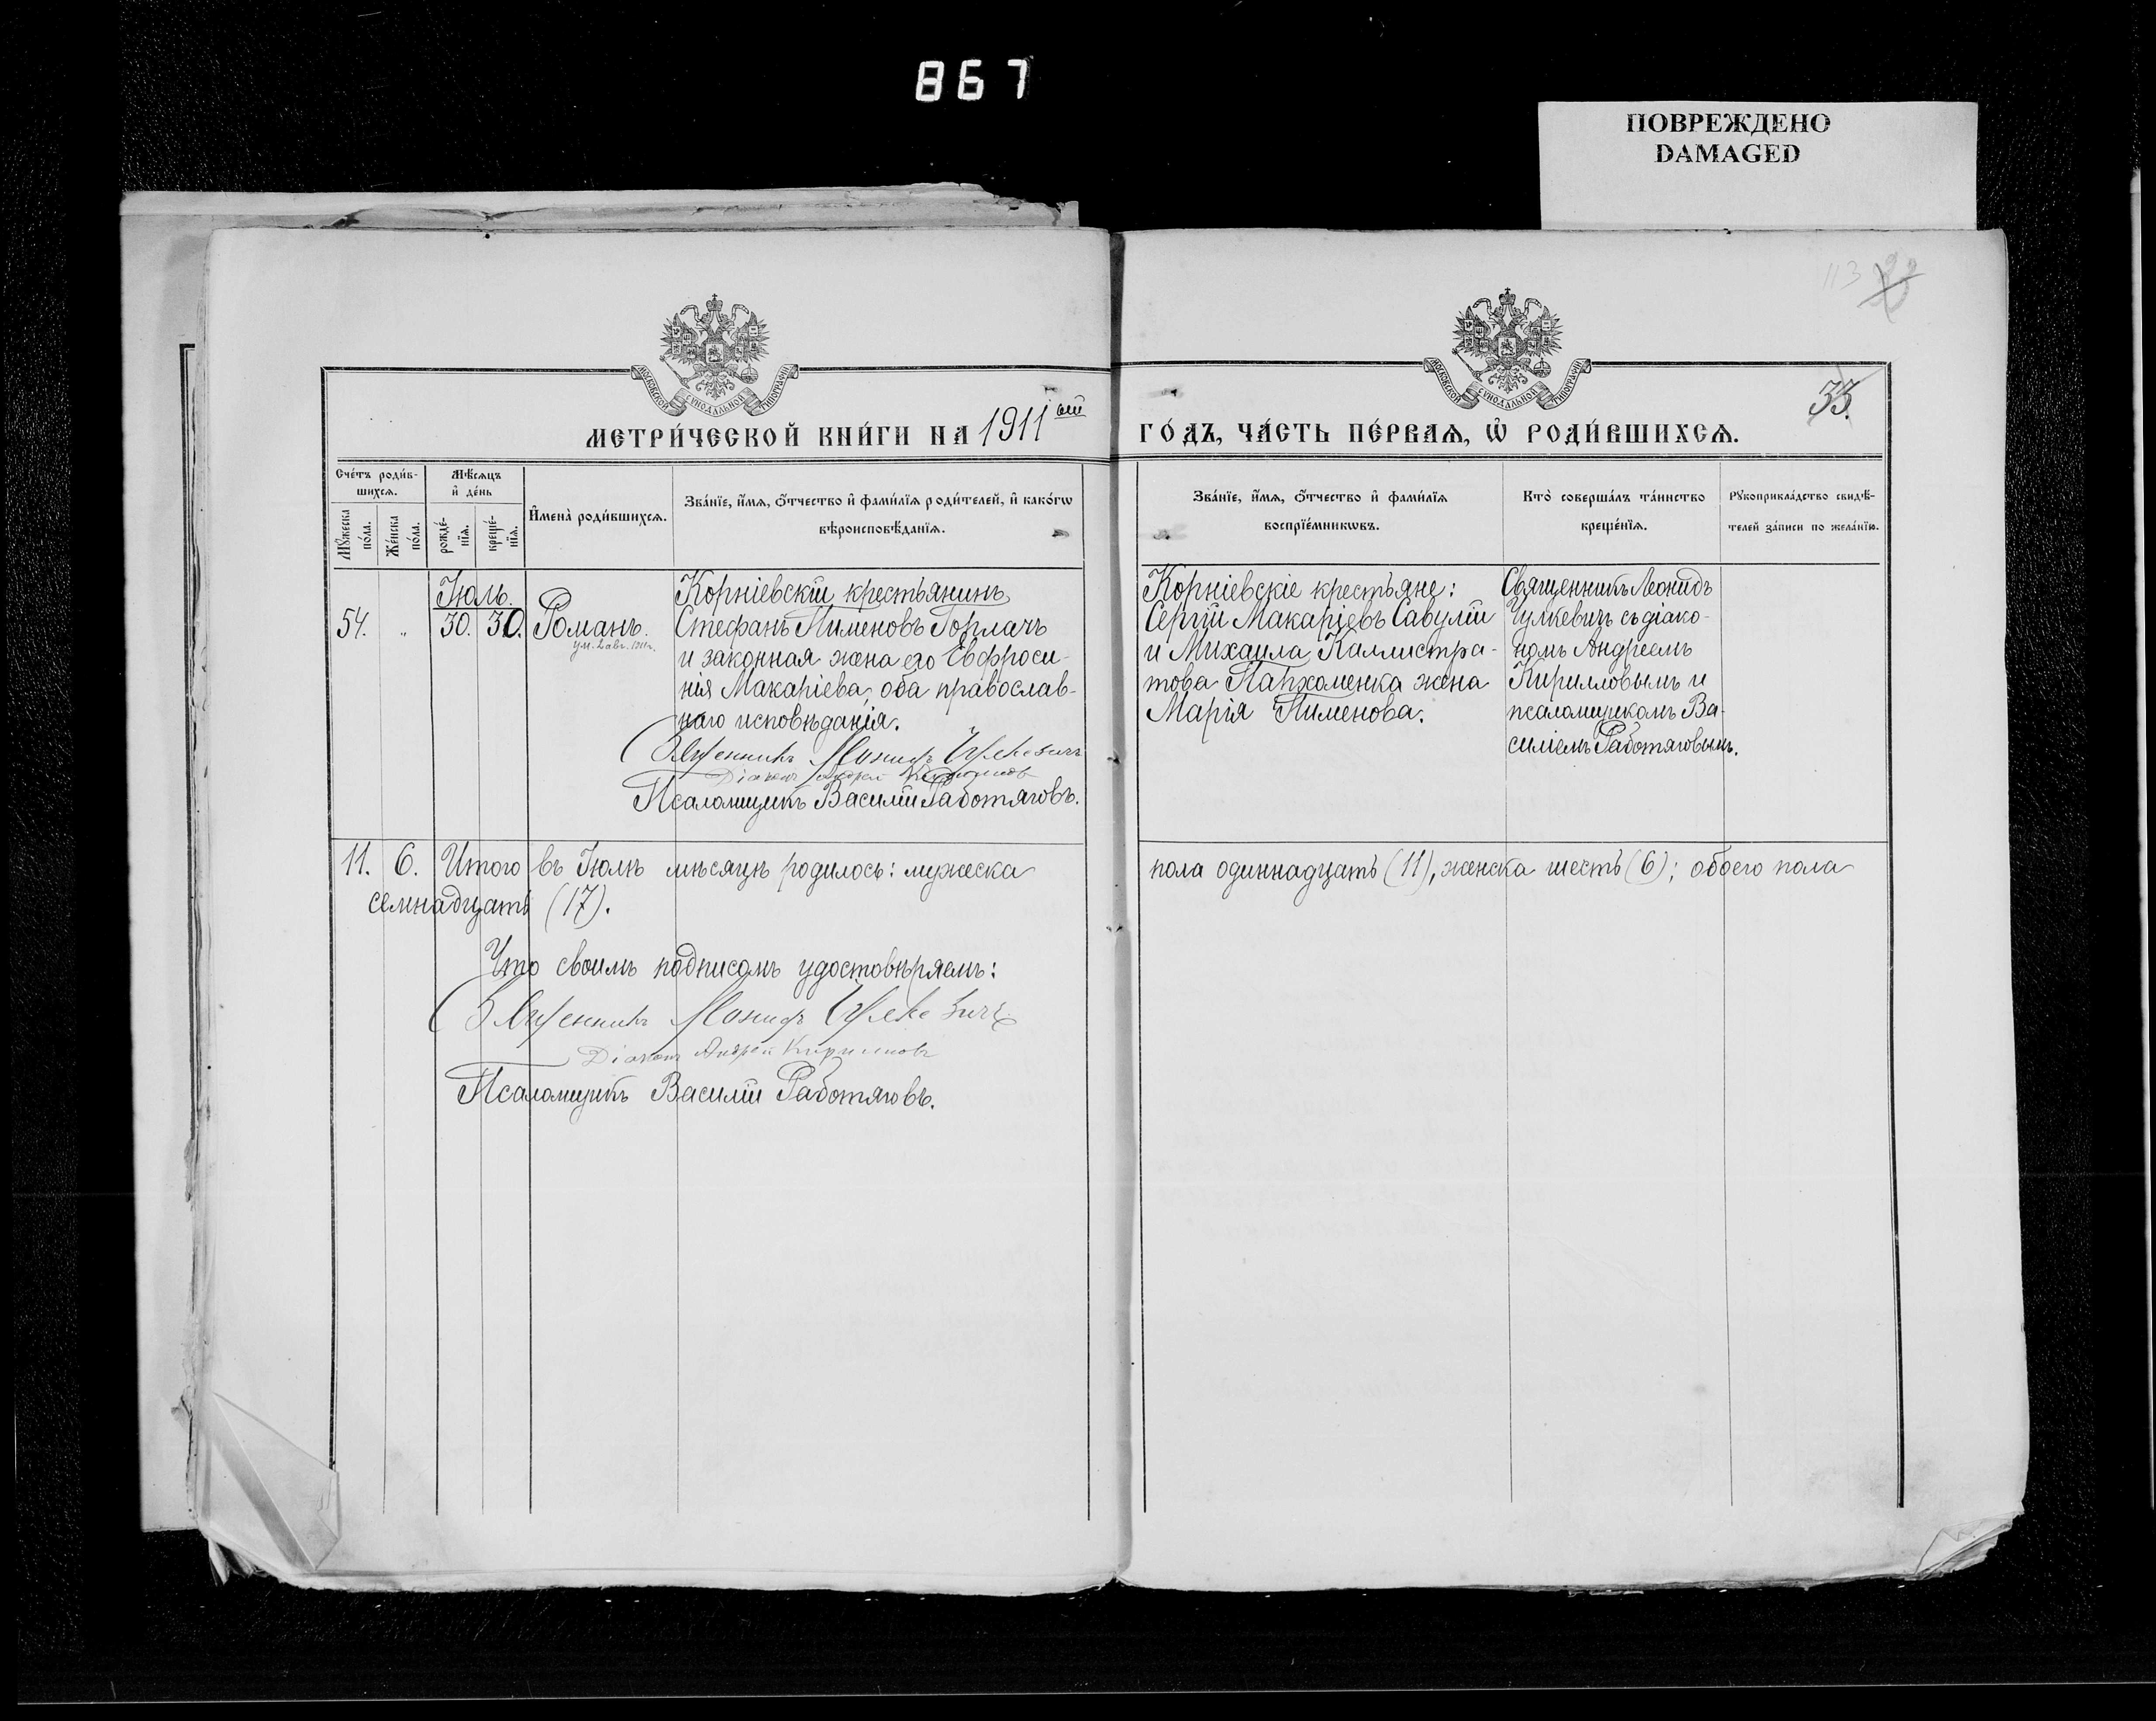 867
ПОВРЕЖДЕНО
DAMAGED
113
33.
МОСКОВСКОЙ СѴНОДАЛЬНОЙ ТИПОГРАФІИ
МОСКОВСКОЙ СѴНОДАЛЬНОЙ ТИПОГРАФІИ
МЕТРИ́ЧЕСКОЙ КНИ́ГИ НА 1911 ый ГО́ДЪ, ЧА́СТЬ ПЕ́РВАѦ, Ѡ҆ РОДИ́ВШИХСѦ.
Сче́тъ роди́в-
шихсѧ.
Мꙋ́жеска
по́ла.
Же́нска
по́ла.
Мѣ́сѧцъ
и҆ де́нь
рожде́-
нїѧ.
креще́-
нїѧ.
И҆мена̀ роди́вшихсѧ.
Зва́нїе, и҆́мѧ, ѻ҆́тчество и҆ фами́лїѧ роди́телей, и҆ како́гѡ
вѣроисповѣ́данїѧ.
Зва́нїе, и҆́мѧ, ѻ҆́тчество и҆ фами́лїѧ
воспрїе́мникѡвъ.
Кто̀ соверша́лъ та́инство
креще́нїѧ.
Рꙋкоприкла́дство свидѣ́-
телей за́писи по жела́нїю.
Іюль.
54. „ 30. 30. Романъ.
ум. 2 авг. 1911 г.
Корніевскій крестьянинъ
Стефанъ Пименовъ Горлачъ
и законная жена его Евфроси-
нія Макаріева, оба православ-
наго исповѣданія.
Священникъ Леонидъ Чулкевичъ
Діаконъ Андрей Кирилловъ
Псаломщикъ Василій Работяговъ.
Корніевскіе крестьяне:
Сергій Макаріевъ Савулій
и Михаила Каллистра-
това Пархоменка жена
Марія Пименова.
Священникъ Леонидъ
Чулкевичъ съ діако-
номъ Андреемъ
Кирилловымъ и
псаломщикомъ Ва-
силіемъ Работяговымъ.
11. 6. Итого въ Іюлѣ мѣсяцѣ родилось: мужеска пола одиннадцать (11), женска шесть (6); обоего пола
семнадцать (17).
Что своимъ подписомъ удостовѣряемъ:
Священникъ Леонидъ Чулкевичъ
Діаконъ Андрей Кирилловъ
Псаломщикъ Василій Работяговъ.